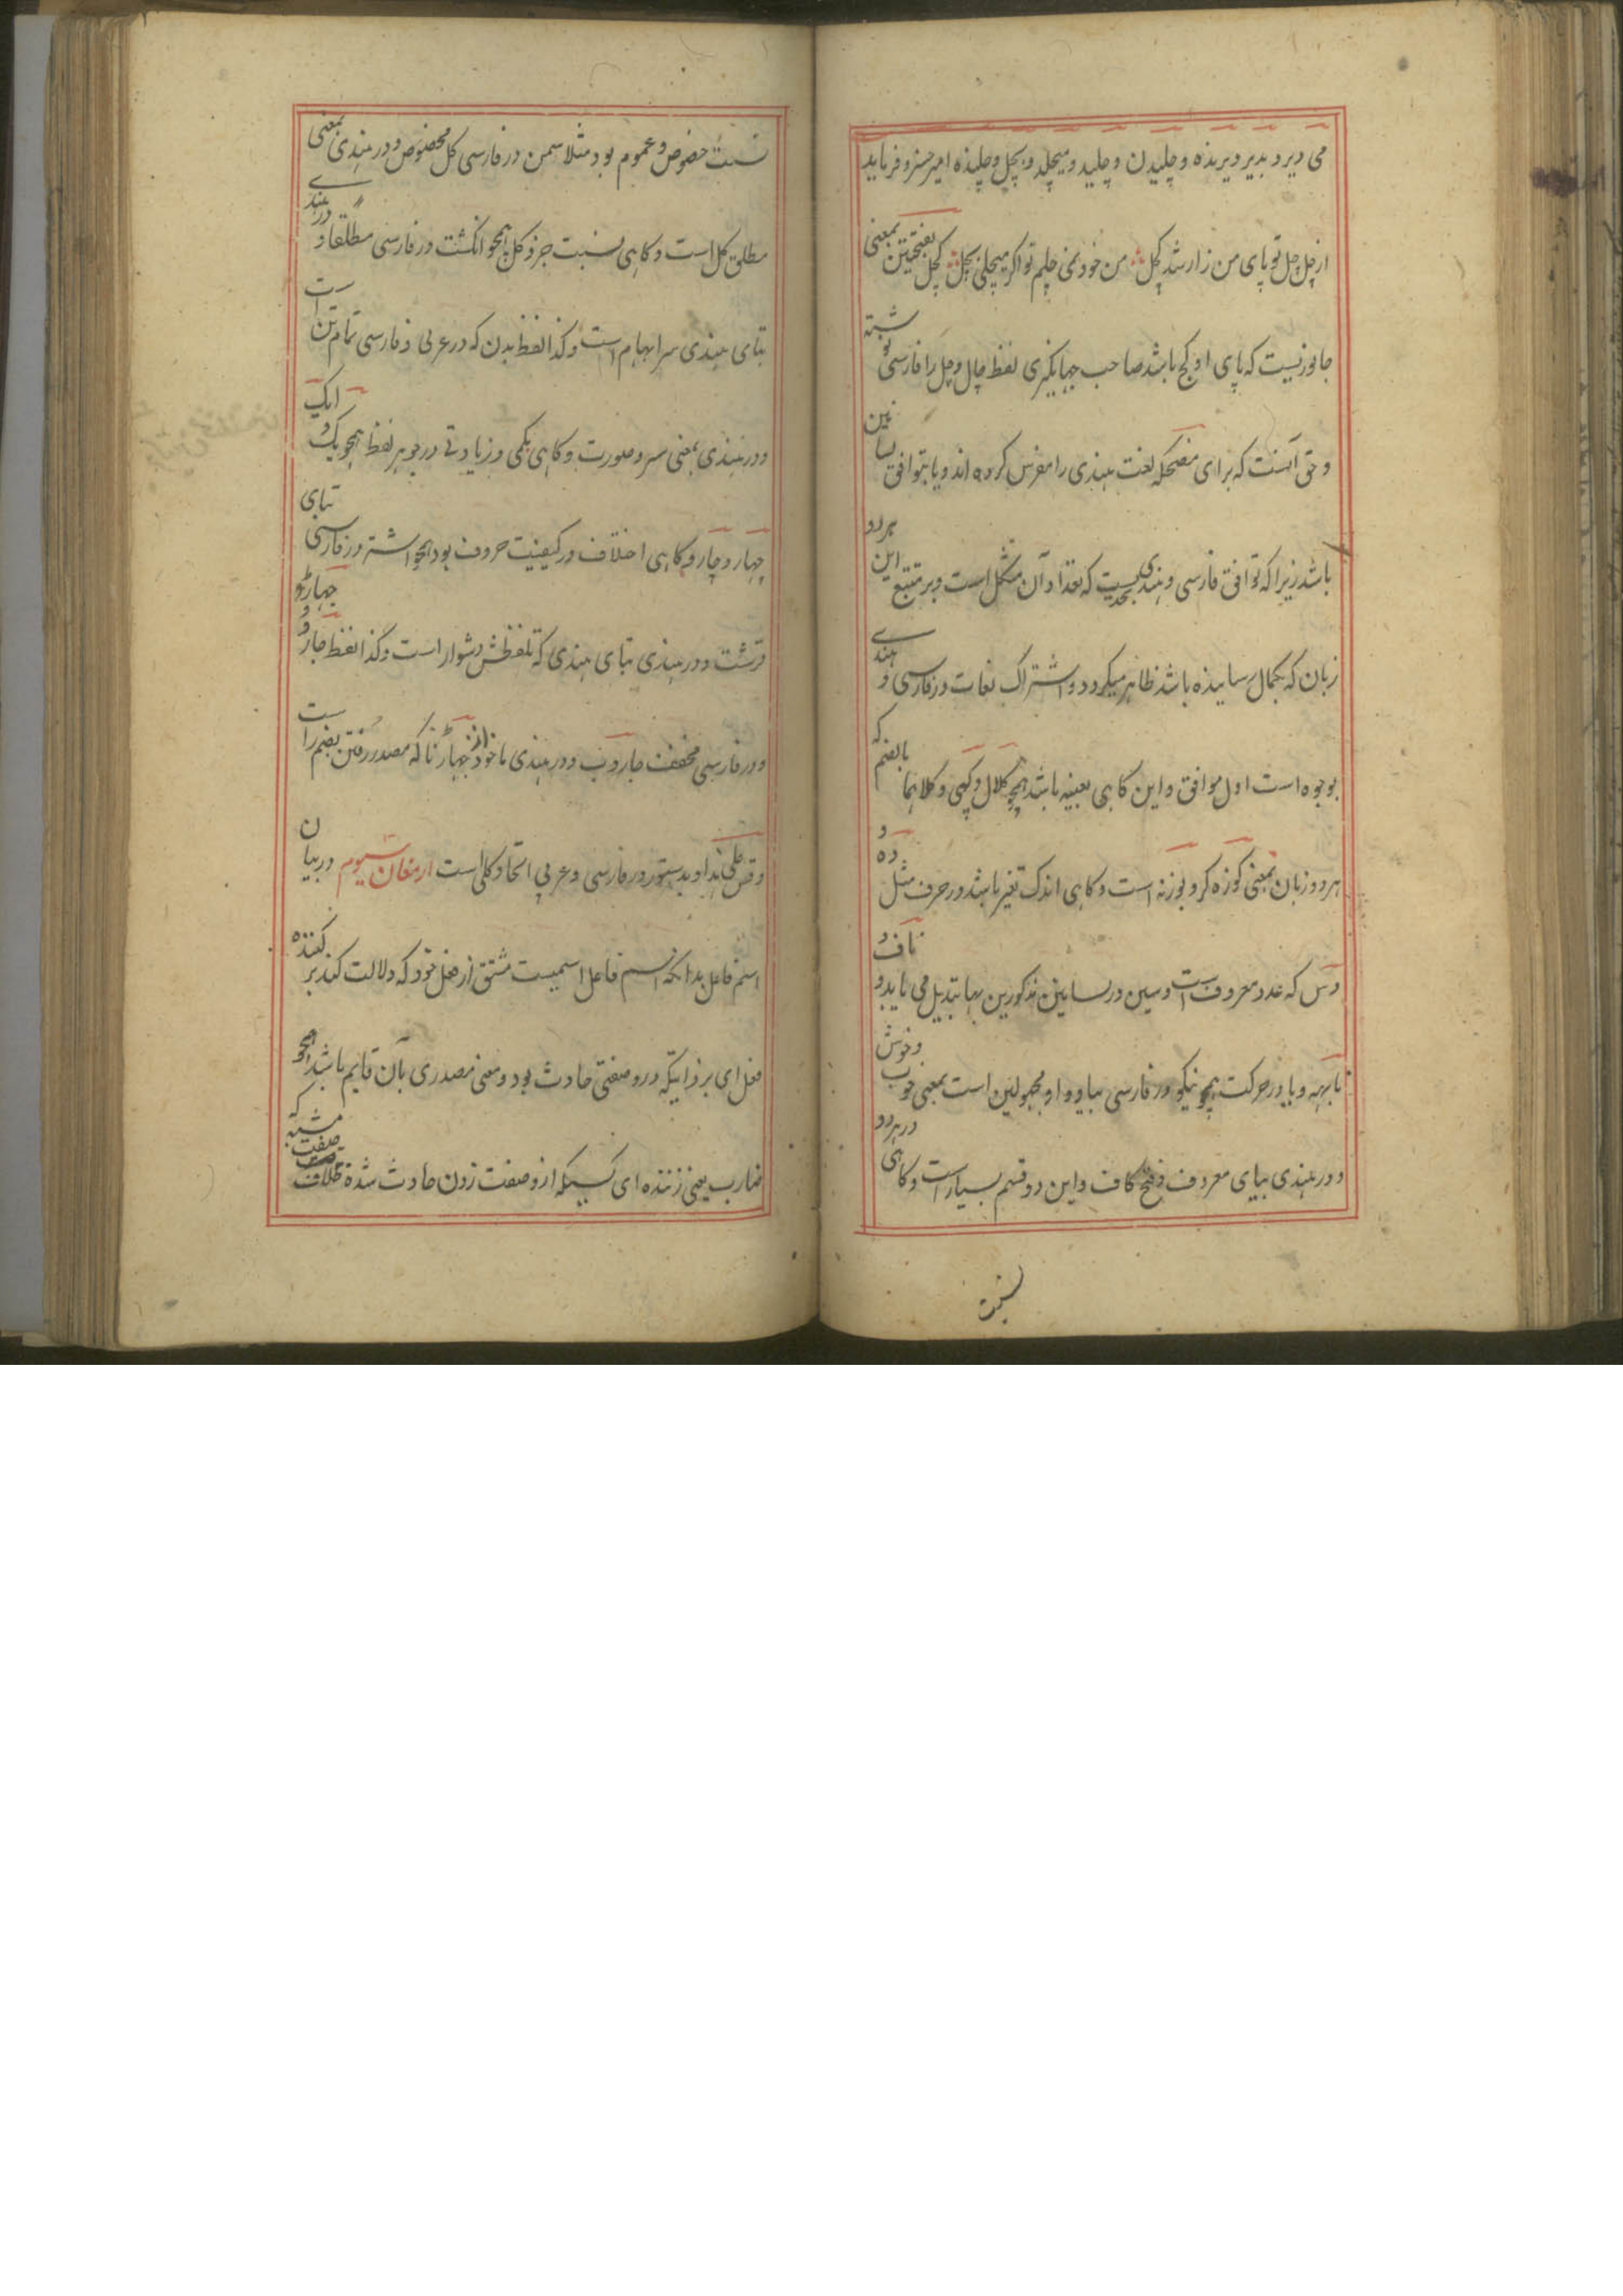 می دیرد بدیر دیرنده و چلیدن و چلید و میچلد و بچل و چلنده امیر خسرو فرماید
از چل چل تو پای من زار شد کچل من خود نمی چلم تو اگر میچلی بچل کچل بفتحتین بمعنی
جانوریست که پای او کج باشد صاحب جهانگیری لفظ چال و چل را فارسی نوشته
و حق آنست که برای مضحکه لغت هندی را مفرس کرده اند و یا بتوافق لسانین
باشد زیرا که توافق فارسی و هندی بحدیست که تعداد آن مشکل است و بر متتبع این هردو
زبان که بکمال رسانیده باشد ظاهر میگردد و اشتراک لغات در فارسی و هندی
بوجوه است اول موافق و این گاهی بعینه باشد همچو کلال و کپی و کلاهما بالضم که
هردو زبان بمعنی کوزه گر و بوزنه است و گاهی اندک تغیر باشد در حرف مثل ده و
دس که عدد معروف است و سین در لسانین مذکورین بها تبدیل می یابد و ناف و
نابهه و یا در حرکت همچو نیکو در فارسی بیا و واو مجهولین است بمعنی خوب و خوش
و در هندی بیای معروف و فتح کاف و این دو قسم بسیار است و گاهی در هردو
نسبت
نسبت خصوص و عموم بود مثلا سمن در فارسی گل مخصوص و در هندی بمعنی
مطلق گل است و گاهی نسبت جزو کل همچو انگشت در فارسی مطلقا و در هندی
بتای هندی سر ابهام است و کذا لفظ بدن که در عربی و فارسی تمام تن است
و در هندی بمعنی سر و صورت و گاهی بکمی و زیادتی در جوهر لفظ همچو یک و ایک
چهار و چار و گاهی اختلاف در کیفیت حروف بود همچو اشتر در فارسی بتای
قرشت و در هندی بتای هندی که تلفظش دشوار است و کذا لفظ جارو و جهاڑو
و در فارسی مخفف جاروب و در هندی ماخوذ از جهاڑنا که مصدر رفتن بضم را ست
و قس علی هذا و بدستور در فارسی و عربی اتحاد کلی است ارمغان سیوم در بیان
اسم فاعل بدانکه اسم فاعل اسمیست مشتق از فعل خود که دلالت کند بر کننده
فعل ای بر ذاتیکه درو صفتی حادث بود و معنی مصدری بآن قایم باشد همچو
ضارب یعنی زننده ای کسیکه ازو صفت زدن حادث شده بخلاف صفت مشبه که